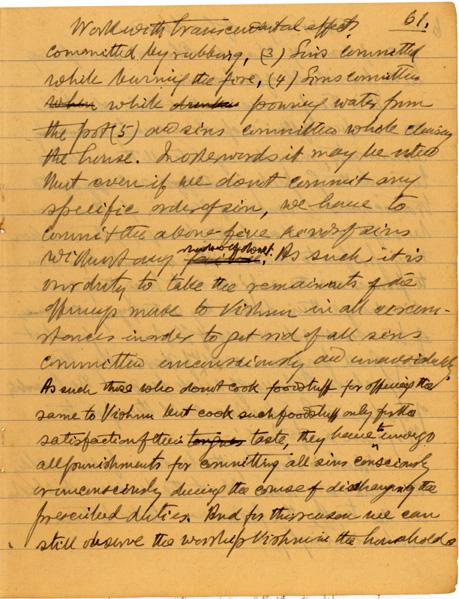 Work with transcendental effect. 61.
committed by rubbing, (3) Sins committed
while burning the fire, (4) Sins committed
while pouring water from
the pot (5) and sins committed while cleaning
the house. In other words it may be noted
that even if we do not commit any
specific order of sin, we have to
commit the above five kinds of sins
without any . As such, it is
our duty to take the remainants of the
offerings made to Vishnu in all circum-
stances in order to get rid of all sins
committed unconsciously and unavoidably
As such those who do not cook foodstuff for offering the
same to Vishnu but cook such foodstuff only for the
satisfaction of their tongues taste, they have to undergo
all punishments for committing all sins consciously
or unconsciously during the course of discharging the
prescribed duties. And for this reason we can
still observe the worship Vishnu in the households